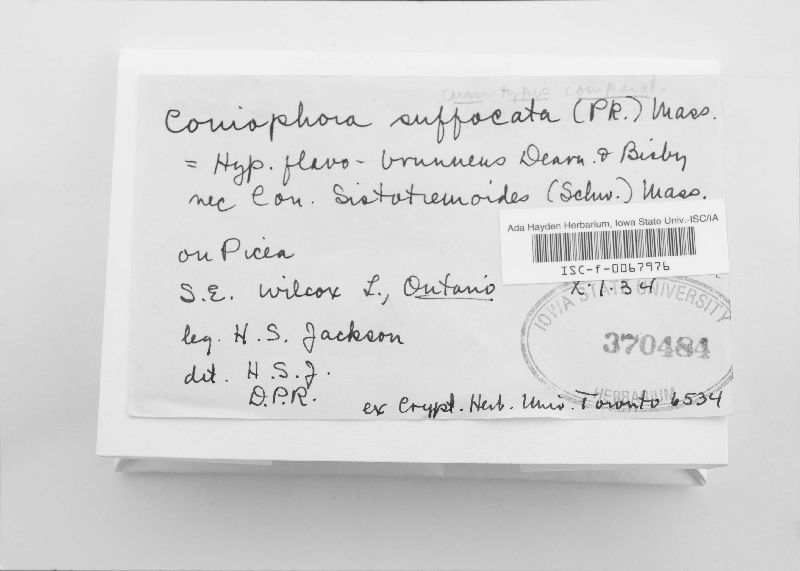 cum typis comparat.
Coniophora suffocata (PK.) Mass.
= Hyp. flavo-brunneus Dearn. & Bisby
nec Con. Sistotremoides (Schw.) Mass.
Ada Hayden Herbarium, Iowa State Univ.-ISC/IA
ISC-f-0067976
on Picea
S.E. Wilcox L., Ontario X.1.34
IOWA STATE UNIVERSITY
370484
HERBARIUM
leg. H. S. Jackson
det. H.S.J.
D.P.R.
ex Crypt. Herb. Univ. Toronto 6534